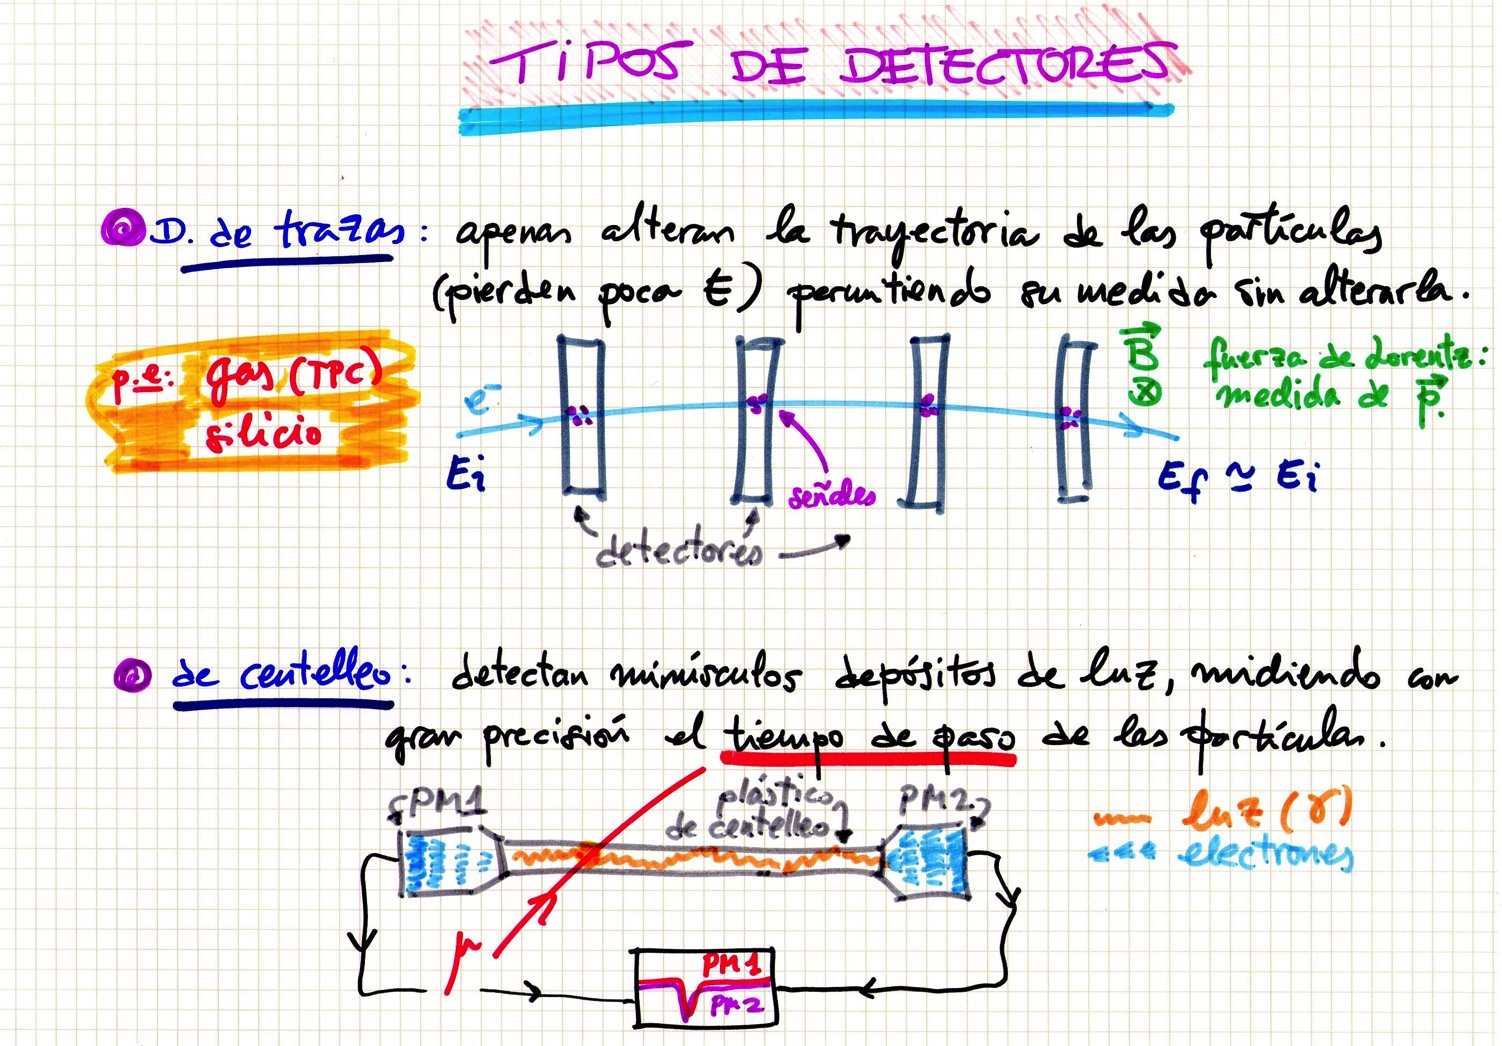 TIPOS DE DETECTORES
D. de trazas: apenas alteran la trayectoria de las partículas
(pierden poca E) permitiendo su medida sin alterarla.
p.e: gas (TPC)
silicio
e-
Ei
señales
detectores
B⃗ fuerza de Lorentz:
⊗ medida de p⃗.
Ef ≃ Ei
de centelleo: detectan minúsculos depósitos de luz, midiendo con
gran precisión el tiempo de paso de las partículas.
PM1
plástico
de centelleo
PM2
luz (γ)
electrones
μ
PM1
PM2